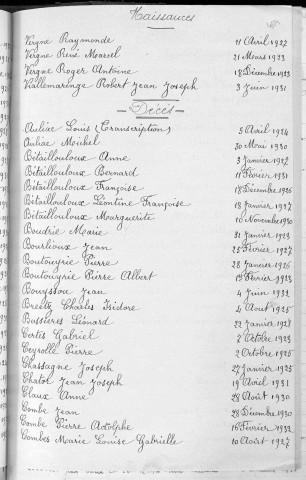 Naissances
Vergne Raymonde 11 Avril 1927
Vergne René Marcel 21 Mars 1923
Vergne Roger Antoine 18 Décembre 1923
Vallemaringe Robert Jean Joseph 3 Juin 1931
Décès
Auliac Louis (Transcription) 5 Avril 1924
Auliac Michel 30 Mai 1930
Bétaillouloux Anne 3 Janvier 1927
Bétaillouloux Bernard 11 Février 1931
Bétaillouloux Françoise 17 Décembre 1926
Bétaillouloux Léontine Françoise 18 Janvier 1927
Bétaillouloux Marguerite 10 Novembre 1930
Boudrie Marie 31 Janvier 1923
Bourlioux Jean 25 Février 1927
Boutouyrie Pierre 28 Janvier 1926
Boutouyrie Pierre Albert 19 Février 1923
Bouyssou Jean 4 Juin 1932
Breetz Charles Isidore 4 Août 1925
Bussières Léonard 22 Janvier 1927
Certes Gabriel 7 Octobre 1923
Ceyrolle Pierre 2 Octobre 1925
Chassagne Joseph 27 Janvier 1925
Chator Jean Joseph 19 Avril 1931
Claux Anne 28 Août 1930
Combe Jean 28 Décembre 1930
Combe Pierre Adolphe 16 Février 1932
Combes Marie Louise Gabrielle 10 Août 1927